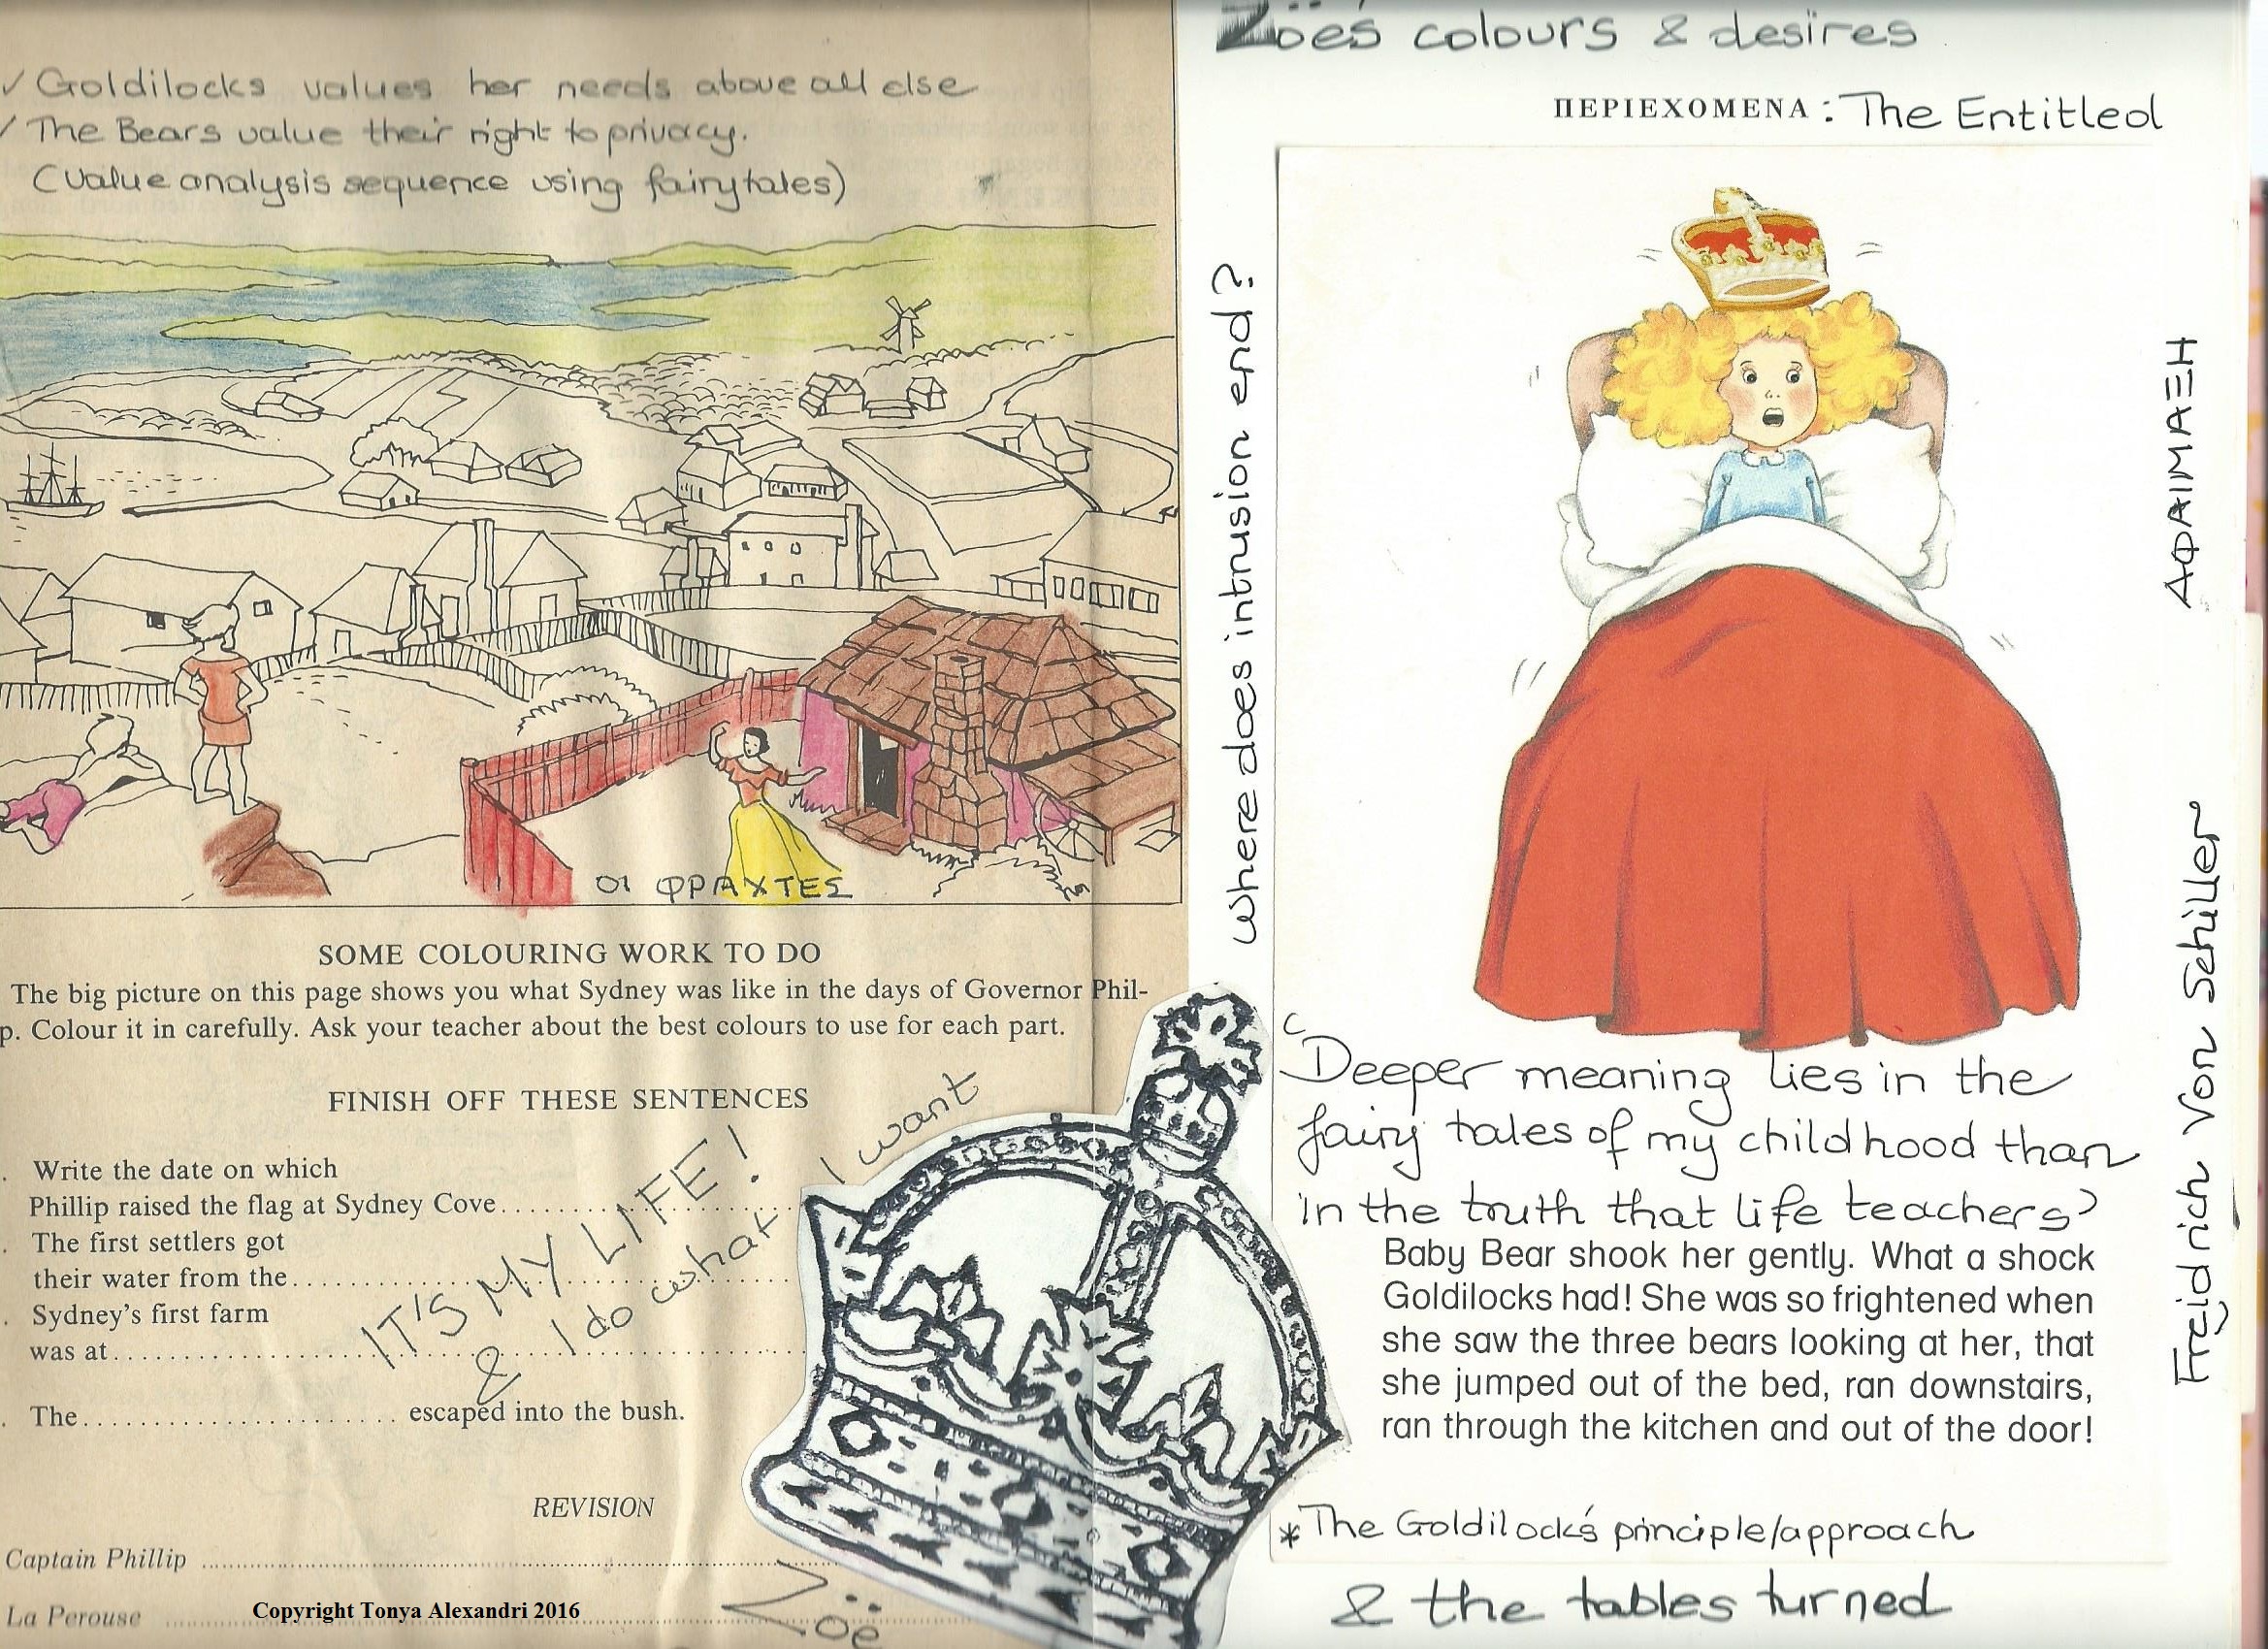 ✓ Goldilocks values her needs above all else
✓ The Bears value their right to privacy.
(Value analysis sequence using fairytales)
ΟΙ ΦΡΑΧΤΕΣ
SOME COLOURING WORK TO DO
The big picture on this page shows you what Sydney was like in the days of Governor Phil-
p. Colour it in carefully. Ask your teacher about the best colours to use for each part.
FINISH OFF THESE SENTENCES
. Write the date on which
Phillip raised the flag at Sydney Cove
. The first settlers got
their water from the
. Sydney's first farm
was at
. The escaped into the bush.
IT'S MY LIFE!
& I do what I want
REVISION
Captain Phillip
La Perouse
Copyright Tonya Alexandri 2016
Zoë
Zoë's colours & desires
ΠΕΡΙΕΧΟΜΕΝΑ : The Entitled
where does intrusion end?
ΑΦΑΙΜΑΞΗ
'Deeper meaning lies in the
fairy tales of my childhood than
in the truth that life teachers'
Freidrich Von Schiller
Baby Bear shook her gently. What a shock
Goldilocks had! She was so frightened when
she saw the three bears looking at her, that
she jumped out of the bed, ran downstairs,
ran through the kitchen and out of the door!
* The Goldilock's principle/approach
& the tables turned